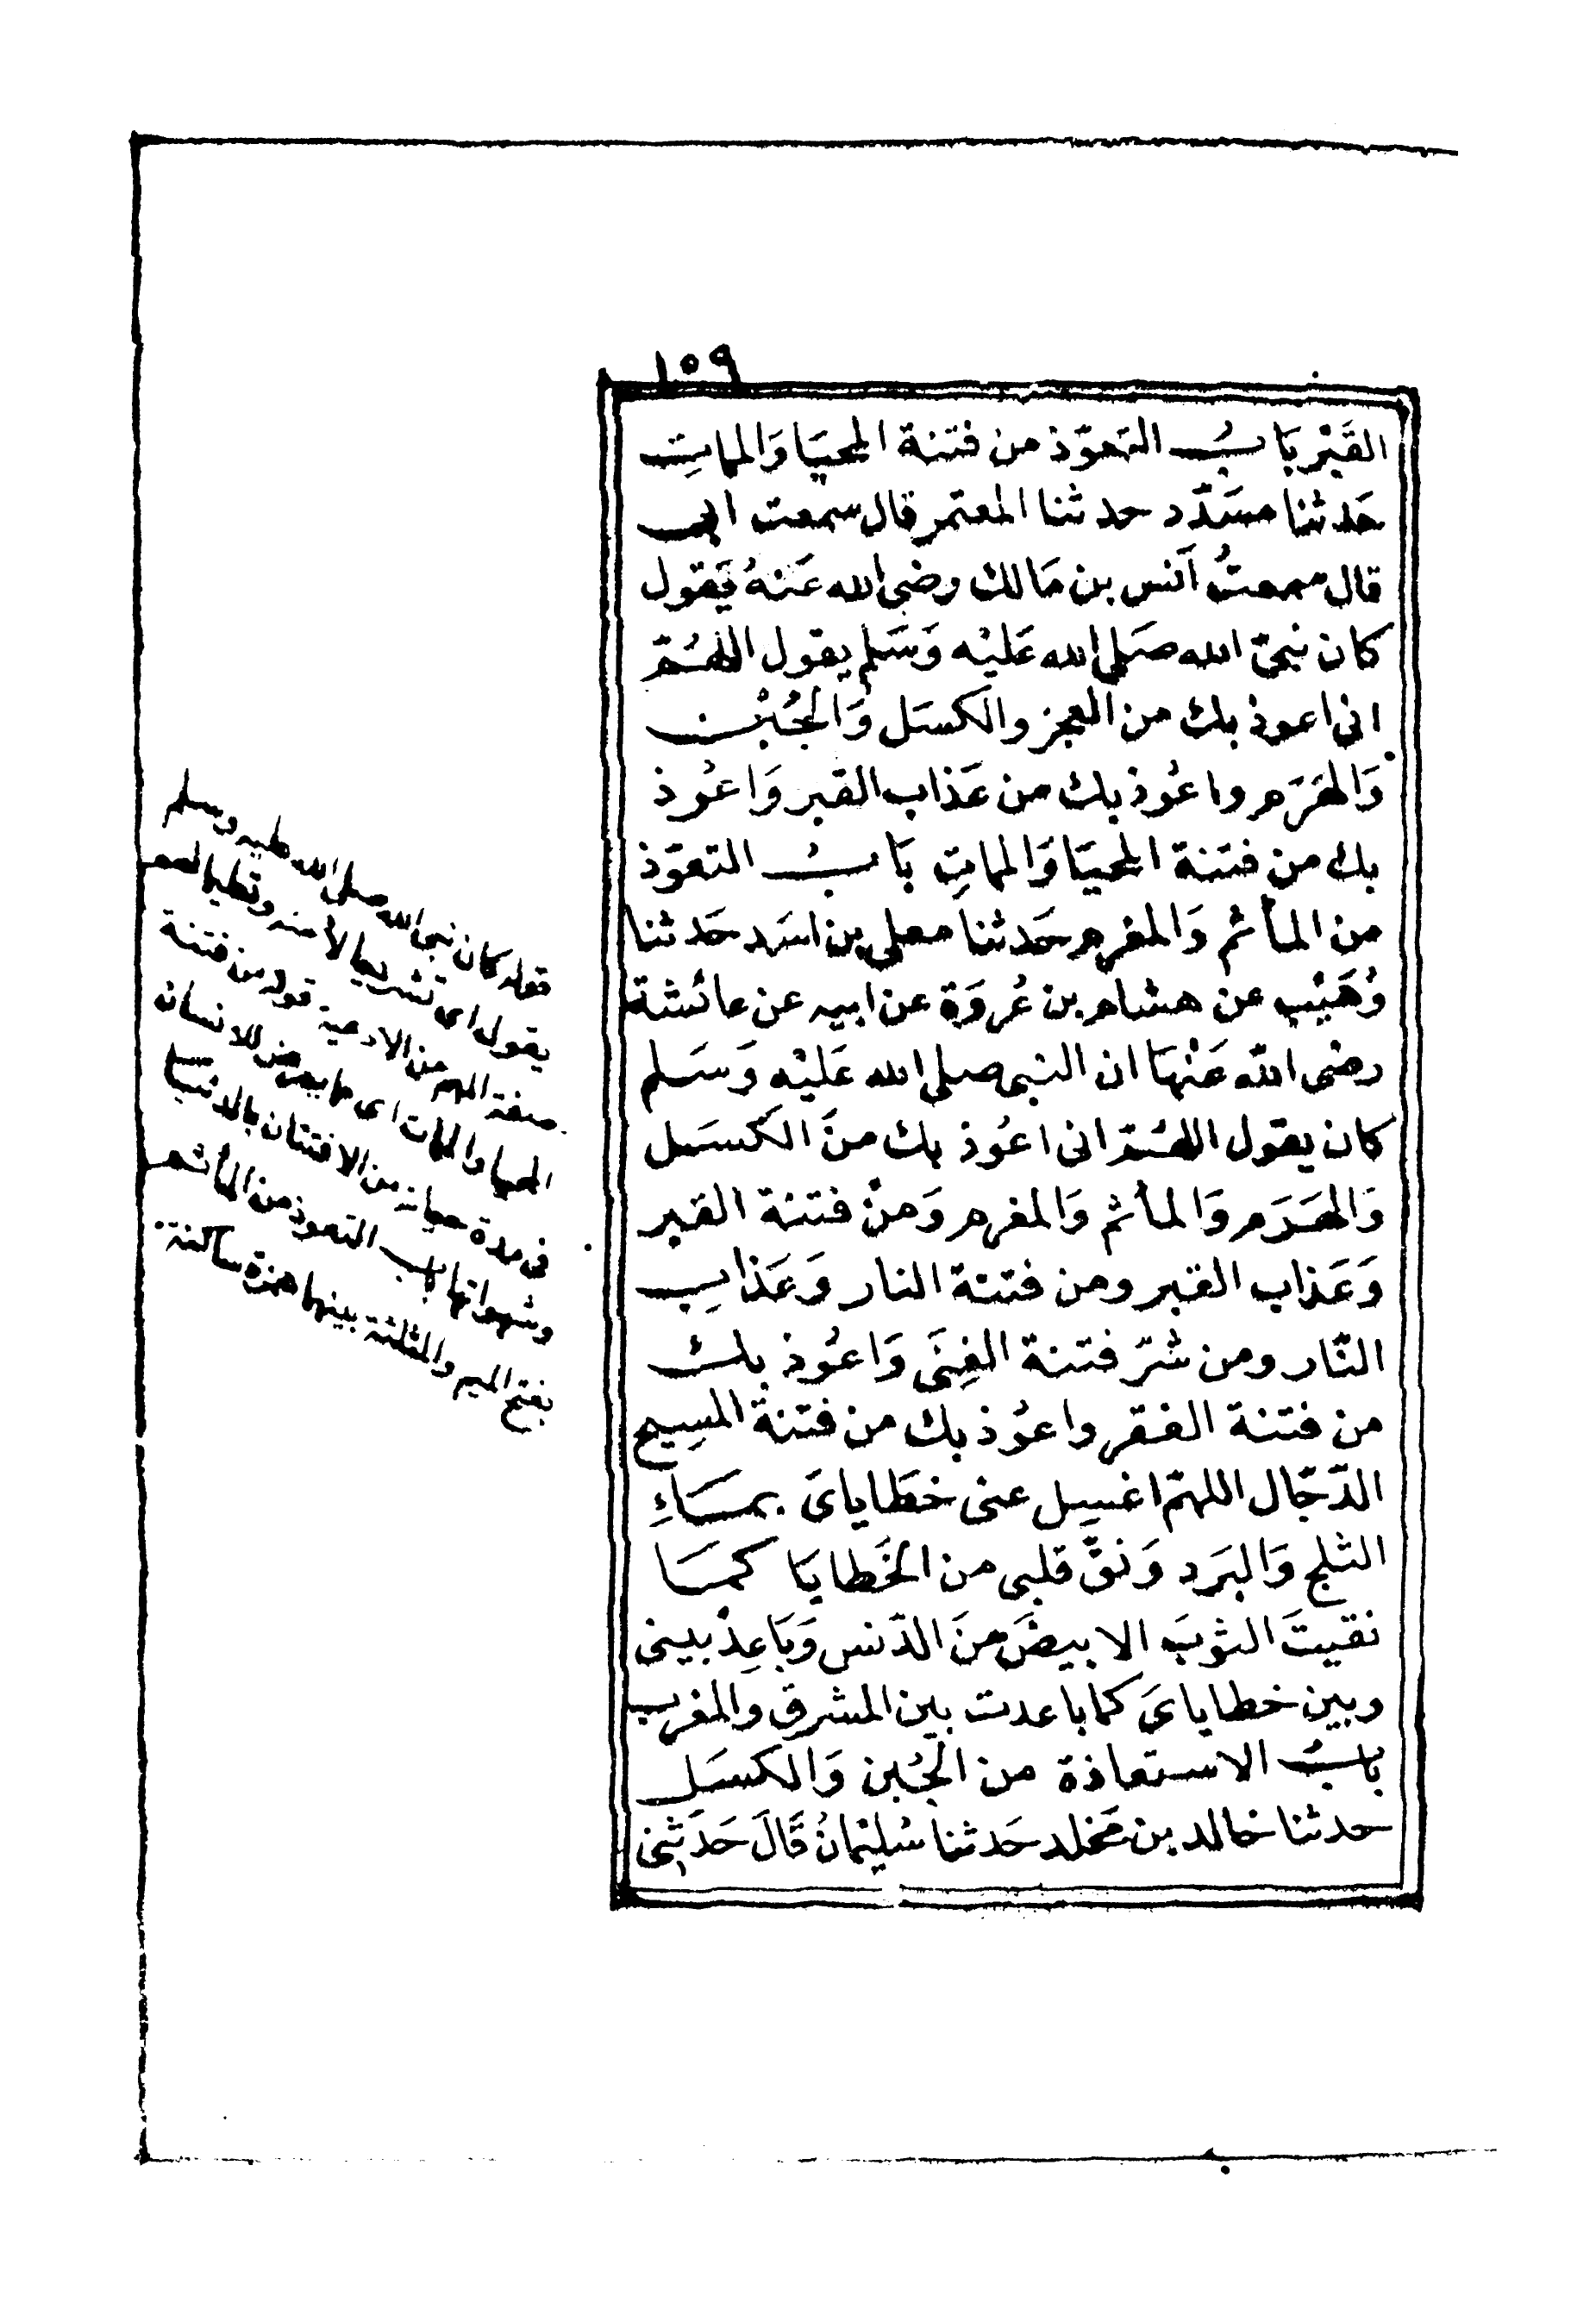 ١٥٩
القَبْر بَابُ التعوّذ من فتنة المحيَا وَالمماتِ
حَدثنا مسَدّد حدثنا المعتمر قال سمعت ابى
قال سمعتُ اَنس بن مَالك رضى الله عَنهُ يَقول
كان نبىّ الله صَلى الله عَليْه وَسَلم يقول اللهُمّ
انى اعوذ بك من العجز والكسَل وَالجُبْن
وَالهَرَم واعُوذ بك من عَذاب القبر وَاعُوذ
بك من فتنة المحيَا وَالمماتِ بَابُ التعوّذ
من المأثم وَالمغرم حَدثنا معلى بن اسَد حَدثنا
وُهَيْب عن هشام بن عُروَة عن ابيه عن عائشة
رضى الله عَنْهَا ان النبى صلى الله عَليْه وَسَلم
كان يقول اللهُمّ انى اعُوذ بك منَ الكسَل
وَالهَرَم وَالمأثم وَالمغرم وَمنْ فتنة القبر
وَعَذاب القبر ومن فتنة النار وَعَذابِ
النّار ومن شرّ فتنة الغِنَى وَاعُوذ بك
من فتنة الفقر واعوُذ بك من فتنة المسِيح
الدّجّال اللهمّ اغسِل عنى خطَاياىَ بمَاءِ
الثلج وَالبَرَد وَنقّ قلبى من الخَطايَا كمَا
نقيتَ الثوبَ الابيضَ منَ الدّنس وَبَاعِدْ بينى
وبين خطاياىَ كما باعدت بين المشرق والمغرب
بابُ الاستعاذة من الجُبن وَالكسَل
حدثنا خالد بن مَخلد حَدثنا سُليْمانُ قَالَ حَدَثنى
قوله كان نبى الله صلى الله عليه وسلم
يقول اى تشريعا لأمته وتعليما لهم
صفة المهم من الادعية قوله من فتنة
المحيا والممات اى ما يعرض للانسان
فى مدة حياته من الافتتان بالدنيا
وشهواتها باب التعوذ من المأثم
بفتح الميم والمثلثة بينهما همزة ساكنة